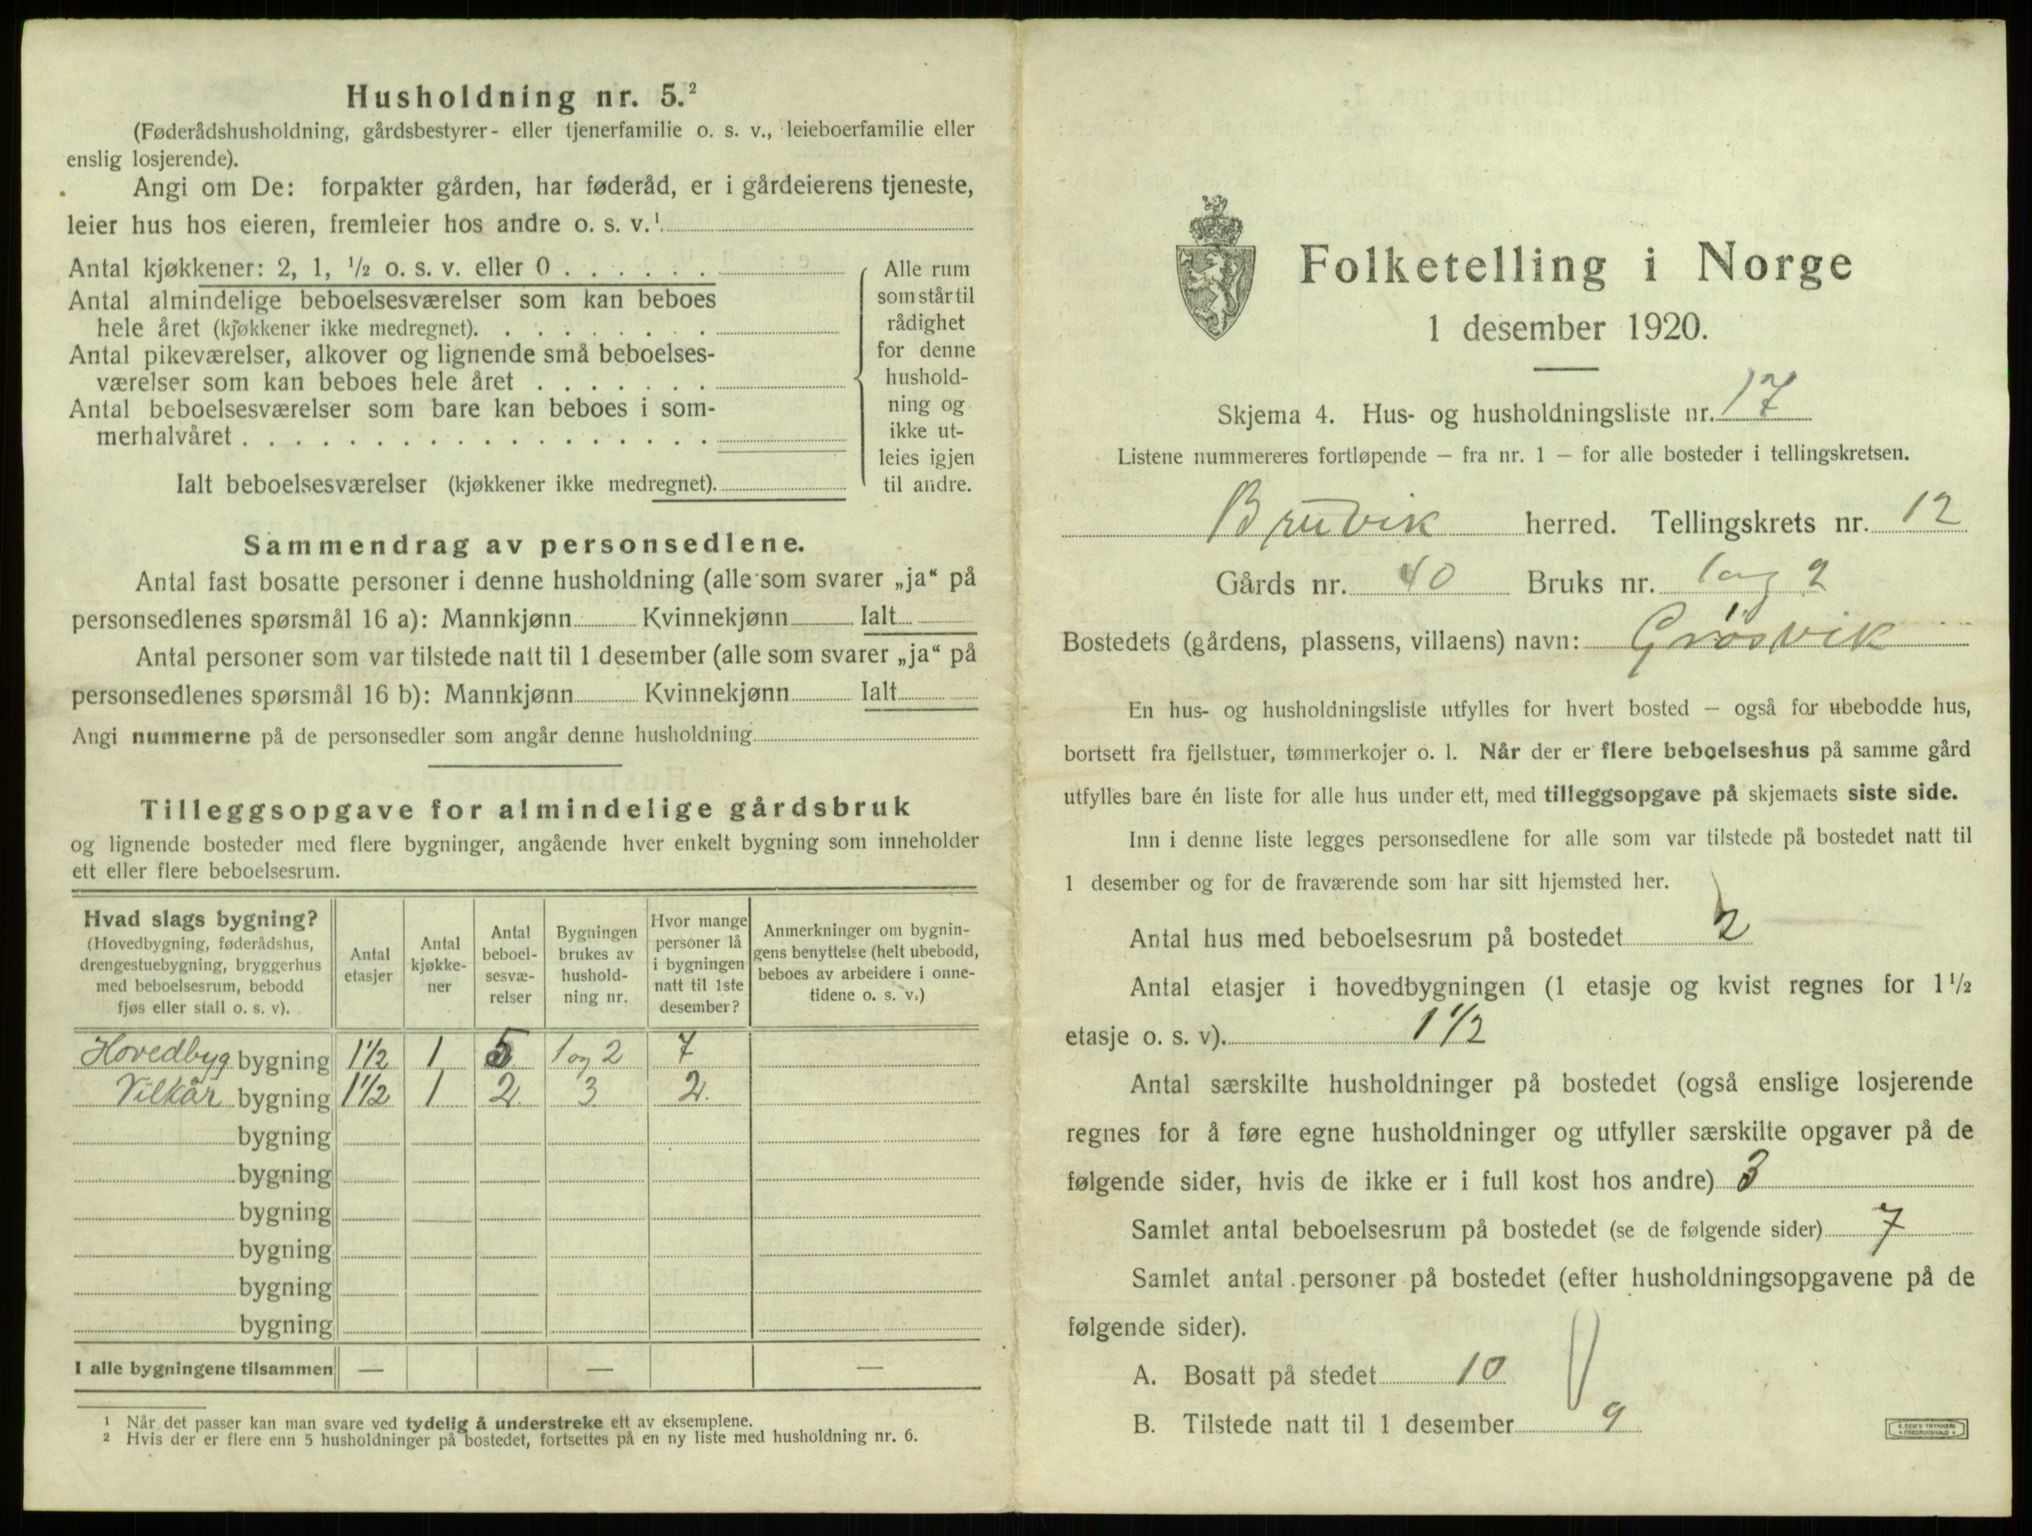 Husholdning nr. 5.²
(Føderådshusholdning, gårdsbestyrer- eller tjenerfamilie o. s. v., leieboerfamilie eller
enslig losjerende).
Angi om De: forpakter gården, har føderåd, er i gårdeierens tjeneste,
leier hus hos eieren, fremleier hos andre o. s. v.¹
Antal kjøkkener: 2, 1, ½ o. s. v. eller 0
Antal almindelige beboelsesværelser som kan beboes
hele året (kjøkkener ikke medregnet).
Antal pikeværelser, alkover og lignende små beboelses-
værelser som kan beboes hele året
Antal beboelsesværelser som bare kan beboes i som-
merhalvåret
Ialt beboelsesværelser (kjøkkener ikke medregnet).
Alle rum
som står til
rådighet
for denne
hushold-
ning og
ikke ut-
leies igjen
til andre.
Sammendrag av personsedlene.
Antal fast bosatte personer i denne husholdning (alle som svarer „ja“ på
personsedlenes spørsmål 16 a): Mannkjønn Kvinnekjønn Ialt
Antal personer som var tilstede natt til 1 desember (alle som svarer „ja“ på
personsedlenes spørsmål 16 b): Mannkjønn Kvinnekjønn Ialt
Angi nummerne på de personsedler som angår denne husholdning
Tilleggsopgave for almindelige gårdsbruk
og lignende bosteder med flere bygninger, angående hver enkelt bygning som inneholder
ett eller flere beboelsesrum.
Hvad slags bygning?
(Hovedbygning, føderådshus,
drengestuebygning, bryggerhus
med beboelsesrum, bebodd
fjøs eller stall o. s. v).
Antal
etasjer
Antal
kjøkke-
ner
Antal
beboel-
sesvæ-
relser
Bygningen
brukes av
hushold-
ning nr.
Hvor mange
personer lå
i bygningen
natt til 1ste
desember?
Anmerkninger om bygnin-
gens benyttelse (helt ubebodd,
beboes av arbeidere i onne-
tidene o. s. v.)
Hovedbyg bygning 1½ 1 5 1 og 2 7
Vilkår bygning 1½ 1 2 3 2
bygning
bygning
bygning
bygning
bygning
bygning
I alle bygningene tilsammen — — —
¹ Når det passer kan man svare ved tydelig å understreke ett av eksemplene.
² Hvis der er flere enn 5 husholdninger på bostedet, fortsettes på en ny liste med husholdning nr. 6.
Folketelling i Norge
1 desember 1920.
Skjema 4. Hus- og husholdningsliste nr. 17
Listene nummereres fortløpende — fra nr. 1 — for alle bosteder i tellingskretsen.
Bruvik herred. Tellingskrets nr. 12
Gårds nr. 40 Bruks nr. 1 og 2
Bostedets (gårdens, plassens, villaens) navn: Grøsvik
En hus- og husholdningsliste utfylles for hvert bosted — også for ubebodde hus,
bortsett fra fjellstuer, tømmerkojer o. l. Når der er flere beboelseshus på samme gård
utfylles bare én liste for alle hus under ett, med tilleggsopgave på skjemaets siste side.
Inn i denne liste legges personsedlene for alle som var tilstede på bostedet natt til
1 desember og for de fraværende som har sitt hjemsted her.
Antal hus med beboelsesrum på bostedet 2
Antal etasjer i hovedbygningen (1 etasje og kvist regnes for 1½
etasje o. s. v). 1½
Antal særskilte husholdninger på bostedet (også enslige losjerende
regnes for å føre egne husholdninger og utfyller særskilte opgaver på de
følgende sider, hvis de ikke er i full kost hos andre) 3
Samlet antal beboelsesrum på bostedet (se de følgende sider) 7
Samlet antal personer på bostedet (efter husholdningsopgavene på de
følgende sider).
A. Bosatt på stedet 10
B. Tilstede natt til 1 desember 9